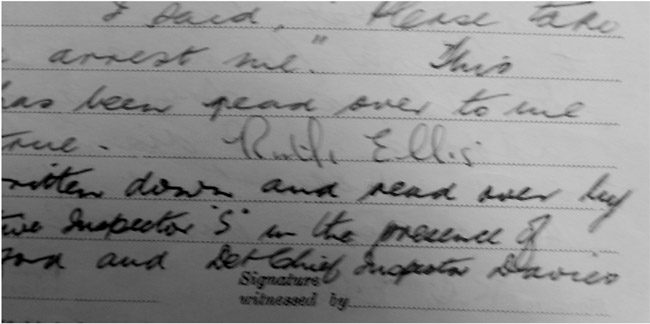 I said, "Please take
arrest me." This
has been read over to me
true. Ruth Ellis
written down and read over by
tive Inspector "S" in the presence of
and Det Chief Inspector Davies
Signature
witnessed by